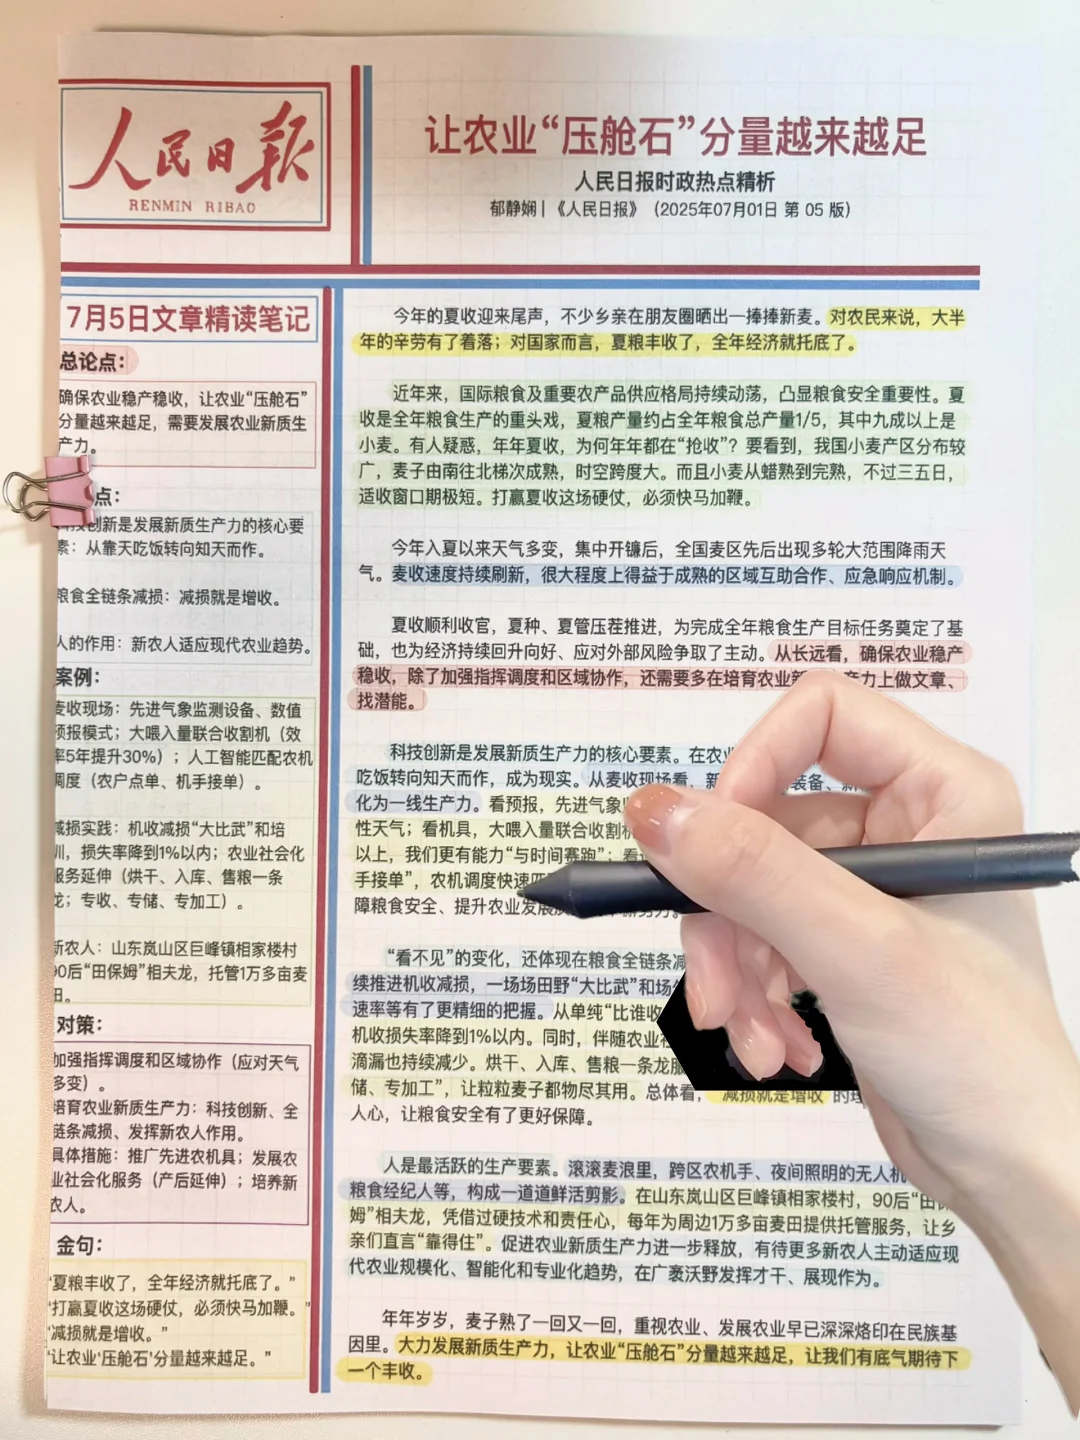 人民日报
RENMIN RIBAO
让农业“压舱石”分量越来越足
人民日报时政热点精析
郁静娴 | 《人民日报》 (2025年07月01日 第 05 版)
7月5日文章精读笔记
总论点：
确保农业稳产稳收，让农业“压舱石”
分量越来越足，需要发展农业新质生
产力。
点：
创新是发展新质生产力的核心要
素：从靠天吃饭转向知天而作。
粮食全链条减损：减损就是增收。
人的作用：新农人适应现代农业趋势。
案例：
麦收现场：先进气象监测设备、数值
预报模式；大喂入量联合收割机（效
率5年提升30%）；人工智能匹配农机
调度（农户点单、机手接单）。
减损实践：机收减损“大比武”和培
训，损失率降到1%以内；农业社会化
服务延伸（烘干、入库、售粮一条
龙；专收、专储、专加工）。
新农人：山东岚山区巨峰镇相家楼村
90后“田保姆”相夫龙，托管1万多亩麦
田。
对策：
加强指挥调度和区域协作（应对天气
多变）。
培育农业新质生产力：科技创新、全
链条减损、发挥新农人作用。
具体措施：推广先进农机具；发展农
业社会化服务（产后延伸）；培养新
农人。
金句：
“夏粮丰收了，全年经济就托底了。”
“打赢夏收这场硬仗，必须快马加鞭。”
“减损就是增收。”
“让农业‘压舱石’分量越来越足。”
今年的夏收迎来尾声，不少乡亲在朋友圈晒出一捧捧新麦。对农民来说，大半
年的辛劳有了着落；对国家而言，夏粮丰收了，全年经济就托底了。
近年来，国际粮食及重要农产品供应格局持续动荡，凸显粮食安全重要性。夏
收是全年粮食生产的重头戏，夏粮产量约占全年粮食总产量1/5，其中九成以上是
小麦。有人疑惑，年年夏收，为何年年都在“抢收”？要看到，我国小麦产区分布较
广，麦子由南往北梯次成熟，时空跨度大。而且小麦从蜡熟到完熟，不过三五日，
适收窗口期极短。打赢夏收这场硬仗，必须快马加鞭。
今年入夏以来天气多变，集中开镰后，全国麦区先后出现多轮大范围降雨天
气。麦收速度持续刷新，很大程度上得益于成熟的区域互助合作、应急响应机制。
夏收顺利收官，夏种、夏管压茬推进，为完成全年粮食生产目标任务奠定了基
础，也为经济持续回升向好、应对外部风险争取了主动。从长远看，确保农业稳产
稳收，除了加强指挥调度和区域协作，还需要多在培育农业新 产力上做文章、
找潜能。
科技创新是发展新质生产力的核心要素。在农
吃饭转向知天而作，成为现实。从麦收现场看，新 装备、新
化为一线生产力。看预报，先进气象
性天气；看机具，大喂入量联合收割机
以上，我们更有能力“与时间赛跑”；看
手接单”，农机调度快速匹
障粮食安全、提升农业发展
“看不见”的变化，还体现在粮食全链条减
续推进机收减损，一场场田野“大比武”和场
速率等有了更精细的把握。从单纯“比谁收
机收损失率降到1%以内。同时，伴随农业社
滴漏也持续减少。烘干、入库、售粮一条龙服
储、专加工”，让粒粒麦子都物尽其用。总体看，“减损就是增收”的理
人心，让粮食安全有了更好保障。
人是最活跃的生产要素。滚滚麦浪里，跨区农机手、夜间照明的无人机
粮食经纪人等，构成一道道鲜活剪影。在山东岚山区巨峰镇相家楼村，90后“田保
姆”相夫龙，凭借过硬技术和责任心，每年为周边1万多亩麦田提供托管服务，让乡
亲们直言“靠得住”。促进农业新质生产力进一步释放，有待更多新农人主动适应现
代农业规模化、智能化和专业化趋势，在广袤沃野发挥才干、展现作为。
年年岁岁，麦子熟了一回又一回，重视农业、发展农业早已深深烙印在民族基
因里。大力发展新质生产力，让农业“压舱石”分量越来越足，让我们有底气期待下
一个丰收。